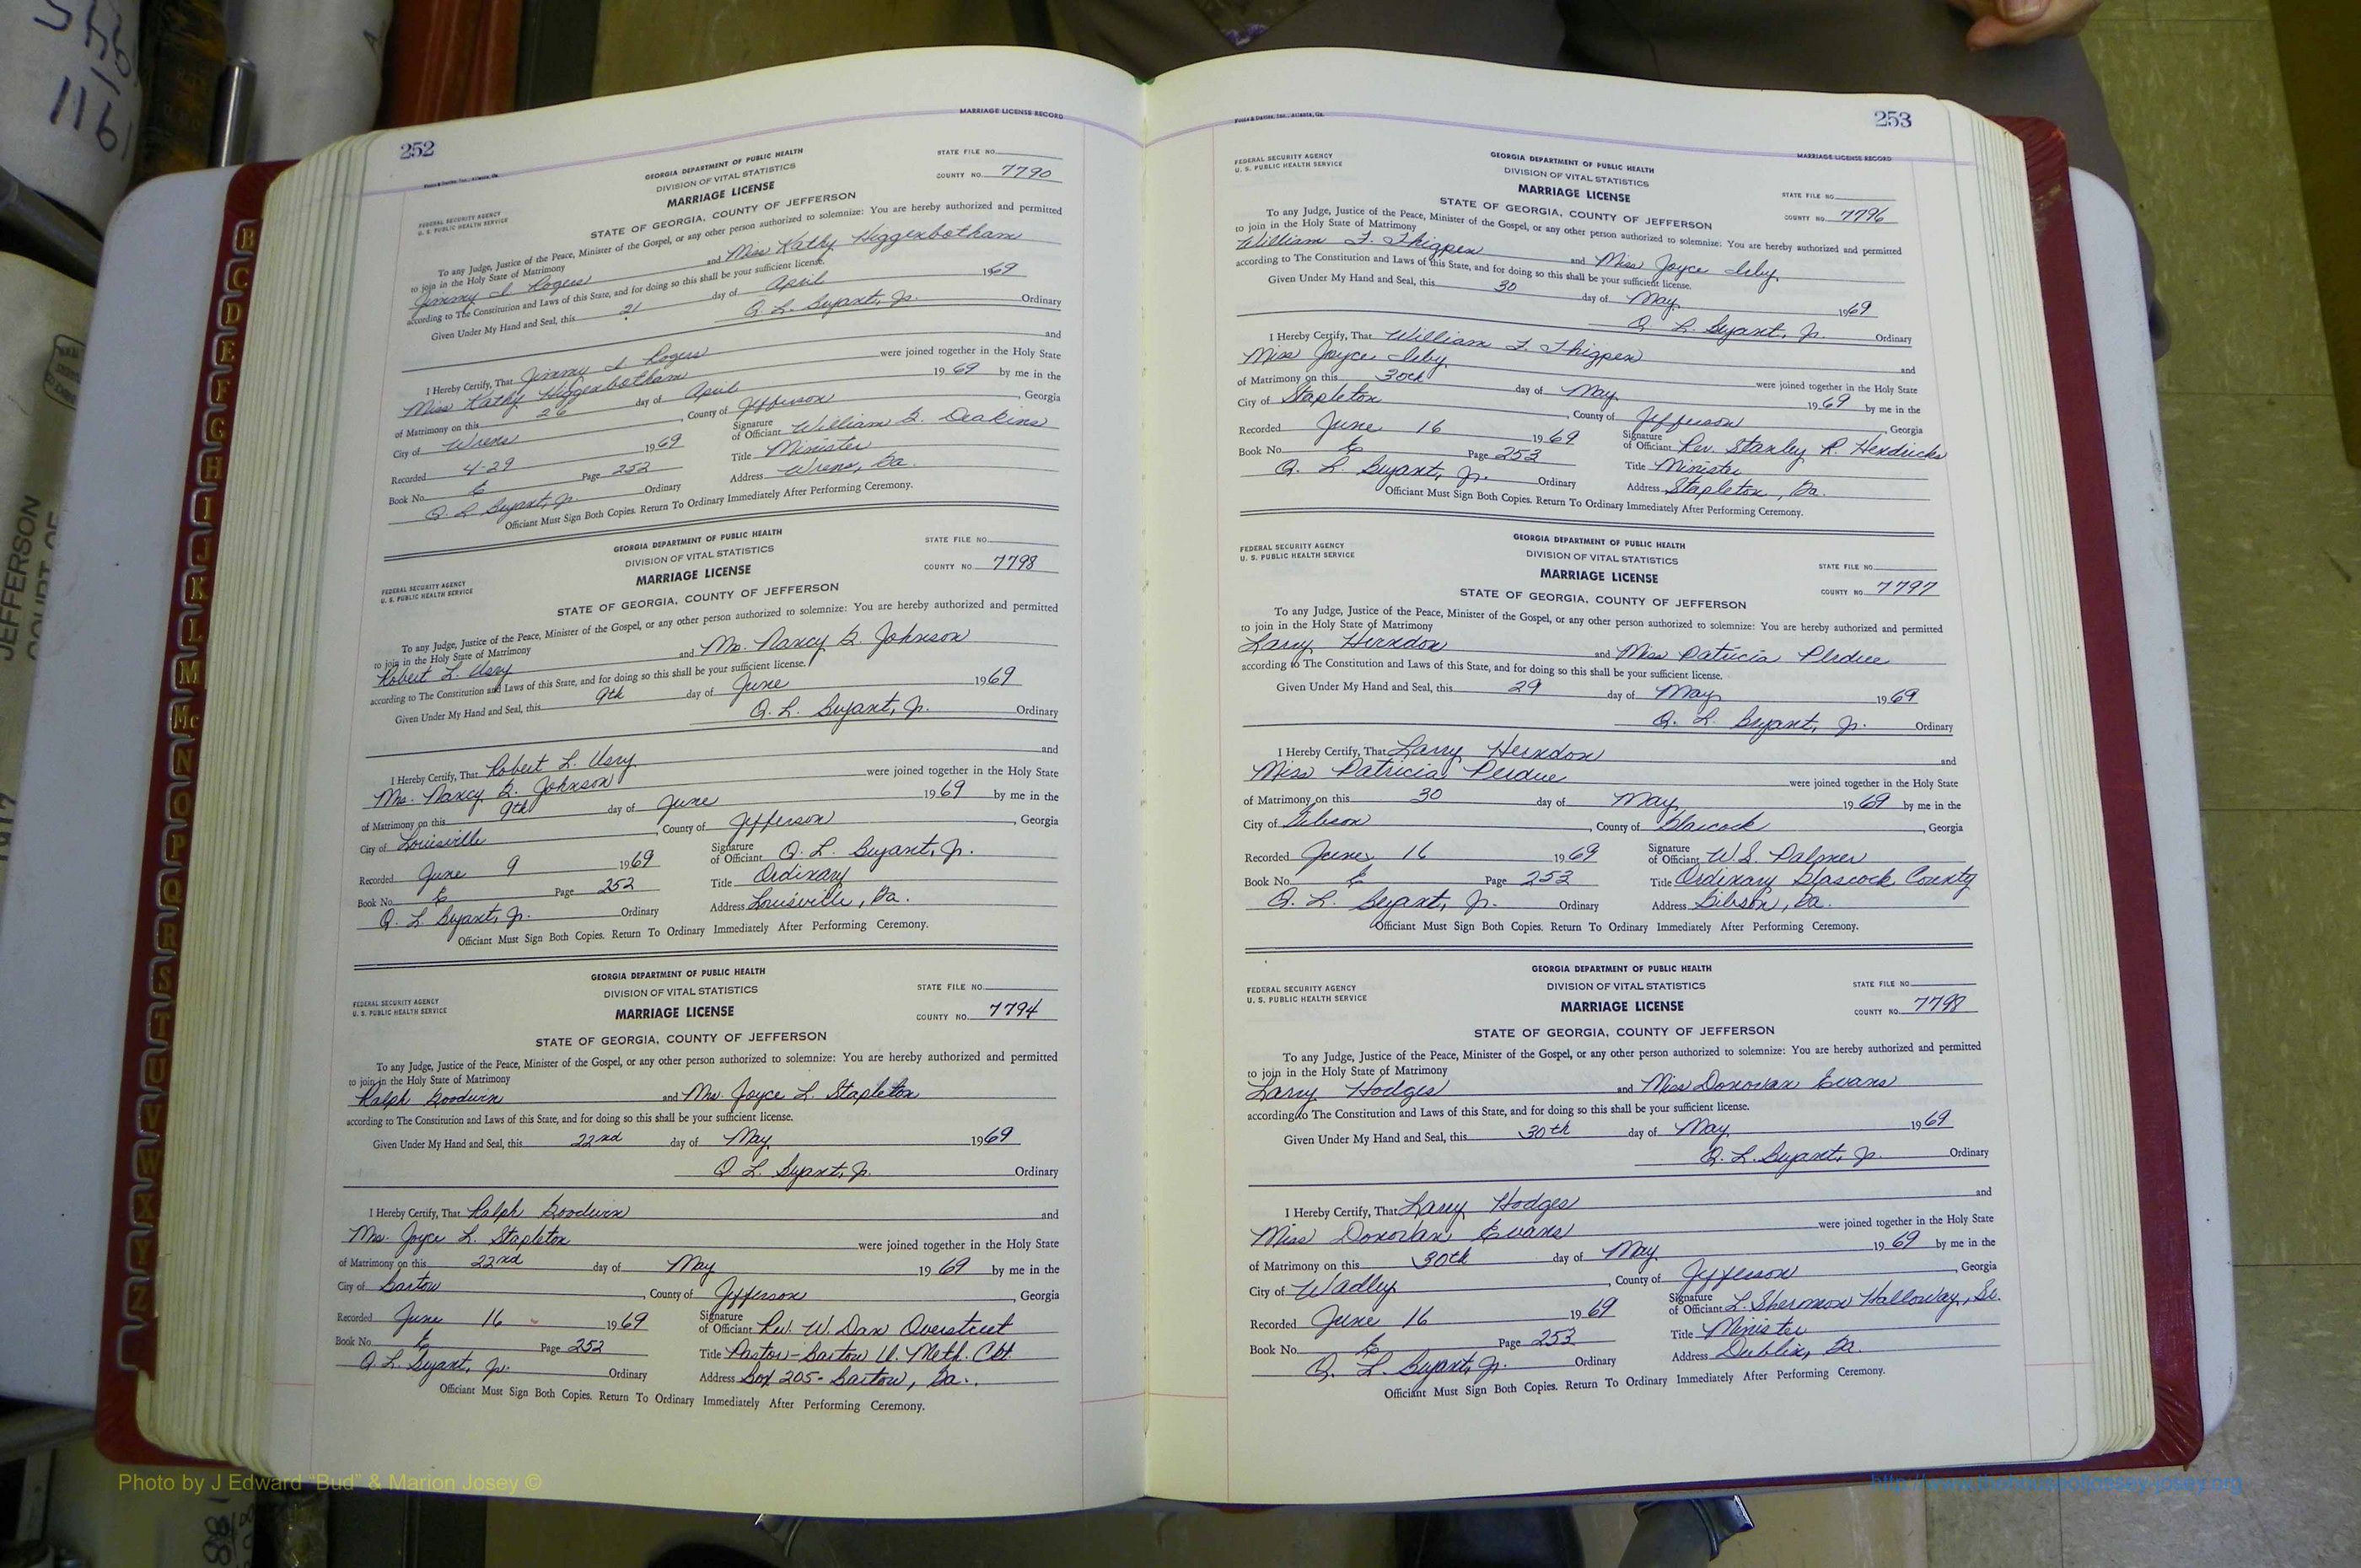 252
MARRIAGE LICENSE RECORD
Foote & Davies, Inc., Atlanta, Ga.
GEORGIA DEPARTMENT OF PUBLIC HEALTH
DIVISION OF VITAL STATISTICS
MARRIAGE LICENSE
STATE OF GEORGIA, COUNTY OF JEFFERSON
FEDERAL SECURITY AGENCY
U. S. PUBLIC HEALTH SERVICE
STATE FILE NO.
COUNTY NO. 7790
To any Judge, Justice of the Peace, Minister of the Gospel, or any other person authorized to solemnize: You are hereby authorized and permitted
to join in the Holy State of Matrimony
Jimmy I Rogers and Miss Kathy Higgenbotham
according to The Constitution and Laws of this State, and for doing so this shall be your sufficient license.
Given Under My Hand and Seal, this 21 day of April 1969
Q. L. Bryant, Jr. Ordinary
I Hereby Certify, That Jimmy I Rogers and
Miss Kathy Higgenbotham were joined together in the Holy State
of Matrimony on this 26 day of April 1969 by me in the
City of Wrens, County of Jefferson, Georgia
Recorded 4-29 1969 Signature of Officiant William G. Deakins
Book No. E Page 252 Title Minister
Q. L Bryant, Jr. Ordinary Address Wrens, Ga.
Officiant Must Sign Both Copies. Return To Ordinary Immediately After Performing Ceremony.
GEORGIA DEPARTMENT OF PUBLIC HEALTH
DIVISION OF VITAL STATISTICS
MARRIAGE LICENSE
STATE OF GEORGIA, COUNTY OF JEFFERSON
FEDERAL SECURITY AGENCY
U. S. PUBLIC HEALTH SERVICE
STATE FILE NO.
COUNTY NO. 7798
To any Judge, Justice of the Peace, Minister of the Gospel, or any other person authorized to solemnize: You are hereby authorized and permitted
to join in the Holy State of Matrimony
Robert L. Usry and Mrs. Nancy G. Johnson
according to The Constitution and Laws of this State, and for doing so this shall be your sufficient license.
Given Under My Hand and Seal, this 9th day of June 1969
Q. L. Bryant, Jr. Ordinary
I Hereby Certify, That Robert L. Usry and
Mrs. Nancy G. Johnson were joined together in the Holy State
of Matrimony on this 9th day of June 1969 by me in the
City of Louisville, County of Jefferson, Georgia
Recorded June 9 1969 Signature of Officiant Q. L. Bryant, Jr.
Book No. E Page 252 Title Ordinary
Q. L. Bryant, Jr. Ordinary Address Louisville, Ga.
Officiant Must Sign Both Copies. Return To Ordinary Immediately After Performing Ceremony.
GEORGIA DEPARTMENT OF PUBLIC HEALTH
DIVISION OF VITAL STATISTICS
MARRIAGE LICENSE
STATE OF GEORGIA, COUNTY OF JEFFERSON
FEDERAL SECURITY AGENCY
U. S. PUBLIC HEALTH SERVICE
STATE FILE NO.
COUNTY NO. 7794
To any Judge, Justice of the Peace, Minister of the Gospel, or any other person authorized to solemnize: You are hereby authorized and permitted
to join in the Holy State of Matrimony
Ralph Goodwin and Mrs. Joyce L. Stapleton
according to The Constitution and Laws of this State, and for doing so this shall be your sufficient license.
Given Under My Hand and Seal, this 22nd day of May 1969
Q L. Bryant, Jr. Ordinary
I Hereby Certify, That Ralph Goodwin and
Mrs. Joyce L. Stapleton were joined together in the Holy State
of Matrimony on this 22nd day of May 1969 by me in the
City of Bartow, County of Jefferson, Georgia
Recorded June 16 1969 Signature of Officiant Rev. W. Dan Overstreet
Book No. E Page 252 Title Pastor-Bartow U. Meth. Cht.
Q. L. Bryant, Jr. Ordinary Address Box 205- Bartow, Ga.
Officiant Must Sign Both Copies. Return To Ordinary Immediately After Performing Ceremony.
253
MARRIAGE LICENSE RECORD
Foote & Davies, Inc., Atlanta, Ga.
GEORGIA DEPARTMENT OF PUBLIC HEALTH
DIVISION OF VITAL STATISTICS
MARRIAGE LICENSE
STATE OF GEORGIA, COUNTY OF JEFFERSON
FEDERAL SECURITY AGENCY
U. S. PUBLIC HEALTH SERVICE
STATE FILE NO.
COUNTY NO. 7796
To any Judge, Justice of the Peace, Minister of the Gospel, or any other person authorized to solemnize: You are hereby authorized and permitted
to join in the Holy State of Matrimony
William F. Thigpen and Miss Joyce Irby
according to The Constitution and Laws of this State, and for doing so this shall be your sufficient license.
Given Under My Hand and Seal, this 30 day of May 1969
Q. L. Bryant, Jr. Ordinary
I Hereby Certify, That William F. Thigpen and
Miss Joyce Irby were joined together in the Holy State
of Matrimony on this 30th day of May 1969 by me in the
City of Stapleton, County of Jefferson, Georgia
Recorded June 16 1969 Signature of Officiant Rev. Stanley R. Hendricks
Book No. E Page 253 Title Minister
Q. L Bryant, Jr. Ordinary Address Stapleton, Ga.
Officiant Must Sign Both Copies. Return To Ordinary Immediately After Performing Ceremony.
GEORGIA DEPARTMENT OF PUBLIC HEALTH
DIVISION OF VITAL STATISTICS
MARRIAGE LICENSE
STATE OF GEORGIA, COUNTY OF JEFFERSON
FEDERAL SECURITY AGENCY
U. S. PUBLIC HEALTH SERVICE
STATE FILE NO.
COUNTY NO. 7797
To any Judge, Justice of the Peace, Minister of the Gospel, or any other person authorized to solemnize: You are hereby authorized and permitted
to join in the Holy State of Matrimony
Larry Herndon and Miss Patricia Perdue
according to The Constitution and Laws of this State, and for doing so this shall be your sufficient license.
Given Under My Hand and Seal, this 29 day of May 1969
Q. L. Bryant, Jr. Ordinary
I Hereby Certify, That Larry Herndon and
Miss Patricia Perdue were joined together in the Holy State
of Matrimony on this 30 day of May 1969 by me in the
City of Gibson, County of Glascock, Georgia
Recorded June 16 1969 Signature of Officiant W.S. Palmer
Book No. E Page 253 Title Ordinary Glascock County
Q. L. Bryant, Jr. Ordinary Address Gibson, Ga.
Officiant Must Sign Both Copies. Return To Ordinary Immediately After Performing Ceremony.
GEORGIA DEPARTMENT OF PUBLIC HEALTH
DIVISION OF VITAL STATISTICS
MARRIAGE LICENSE
STATE OF GEORGIA, COUNTY OF JEFFERSON
FEDERAL SECURITY AGENCY
U. S. PUBLIC HEALTH SERVICE
STATE FILE NO.
COUNTY NO. 7798
To any Judge, Justice of the Peace, Minister of the Gospel, or any other person authorized to solemnize: You are hereby authorized and permitted
to join in the Holy State of Matrimony
Larry Hodges and Miss Donovan Evans
according to The Constitution and Laws of this State, and for doing so this shall be your sufficient license.
Given Under My Hand and Seal, this 30th day of May 1969
Q. L. Bryant, Jr. Ordinary
I Hereby Certify, That Larry Hodges and
Miss Donovan Evans were joined together in the Holy State
of Matrimony on this 30th day of May 1969 by me in the
City of Wadley, County of Jefferson, Georgia
Recorded June 16 1969 Signature of Officiant L. Shermon Halloway, Sr.
Book No. E Page 253 Title Minister
Q. L. Bryant, Jr. Ordinary Address Dublin, Ga.
Officiant Must Sign Both Copies. Return To Ordinary Immediately After Performing Ceremony.
B
C
D
E
F
G
H
I
J
K
L
M
Mc
N
O
P
Q
R
S
T
U
V
W
X
Y
Z
JEFFERSON
Photo by J Edward “Bud” & Marion Josey ©